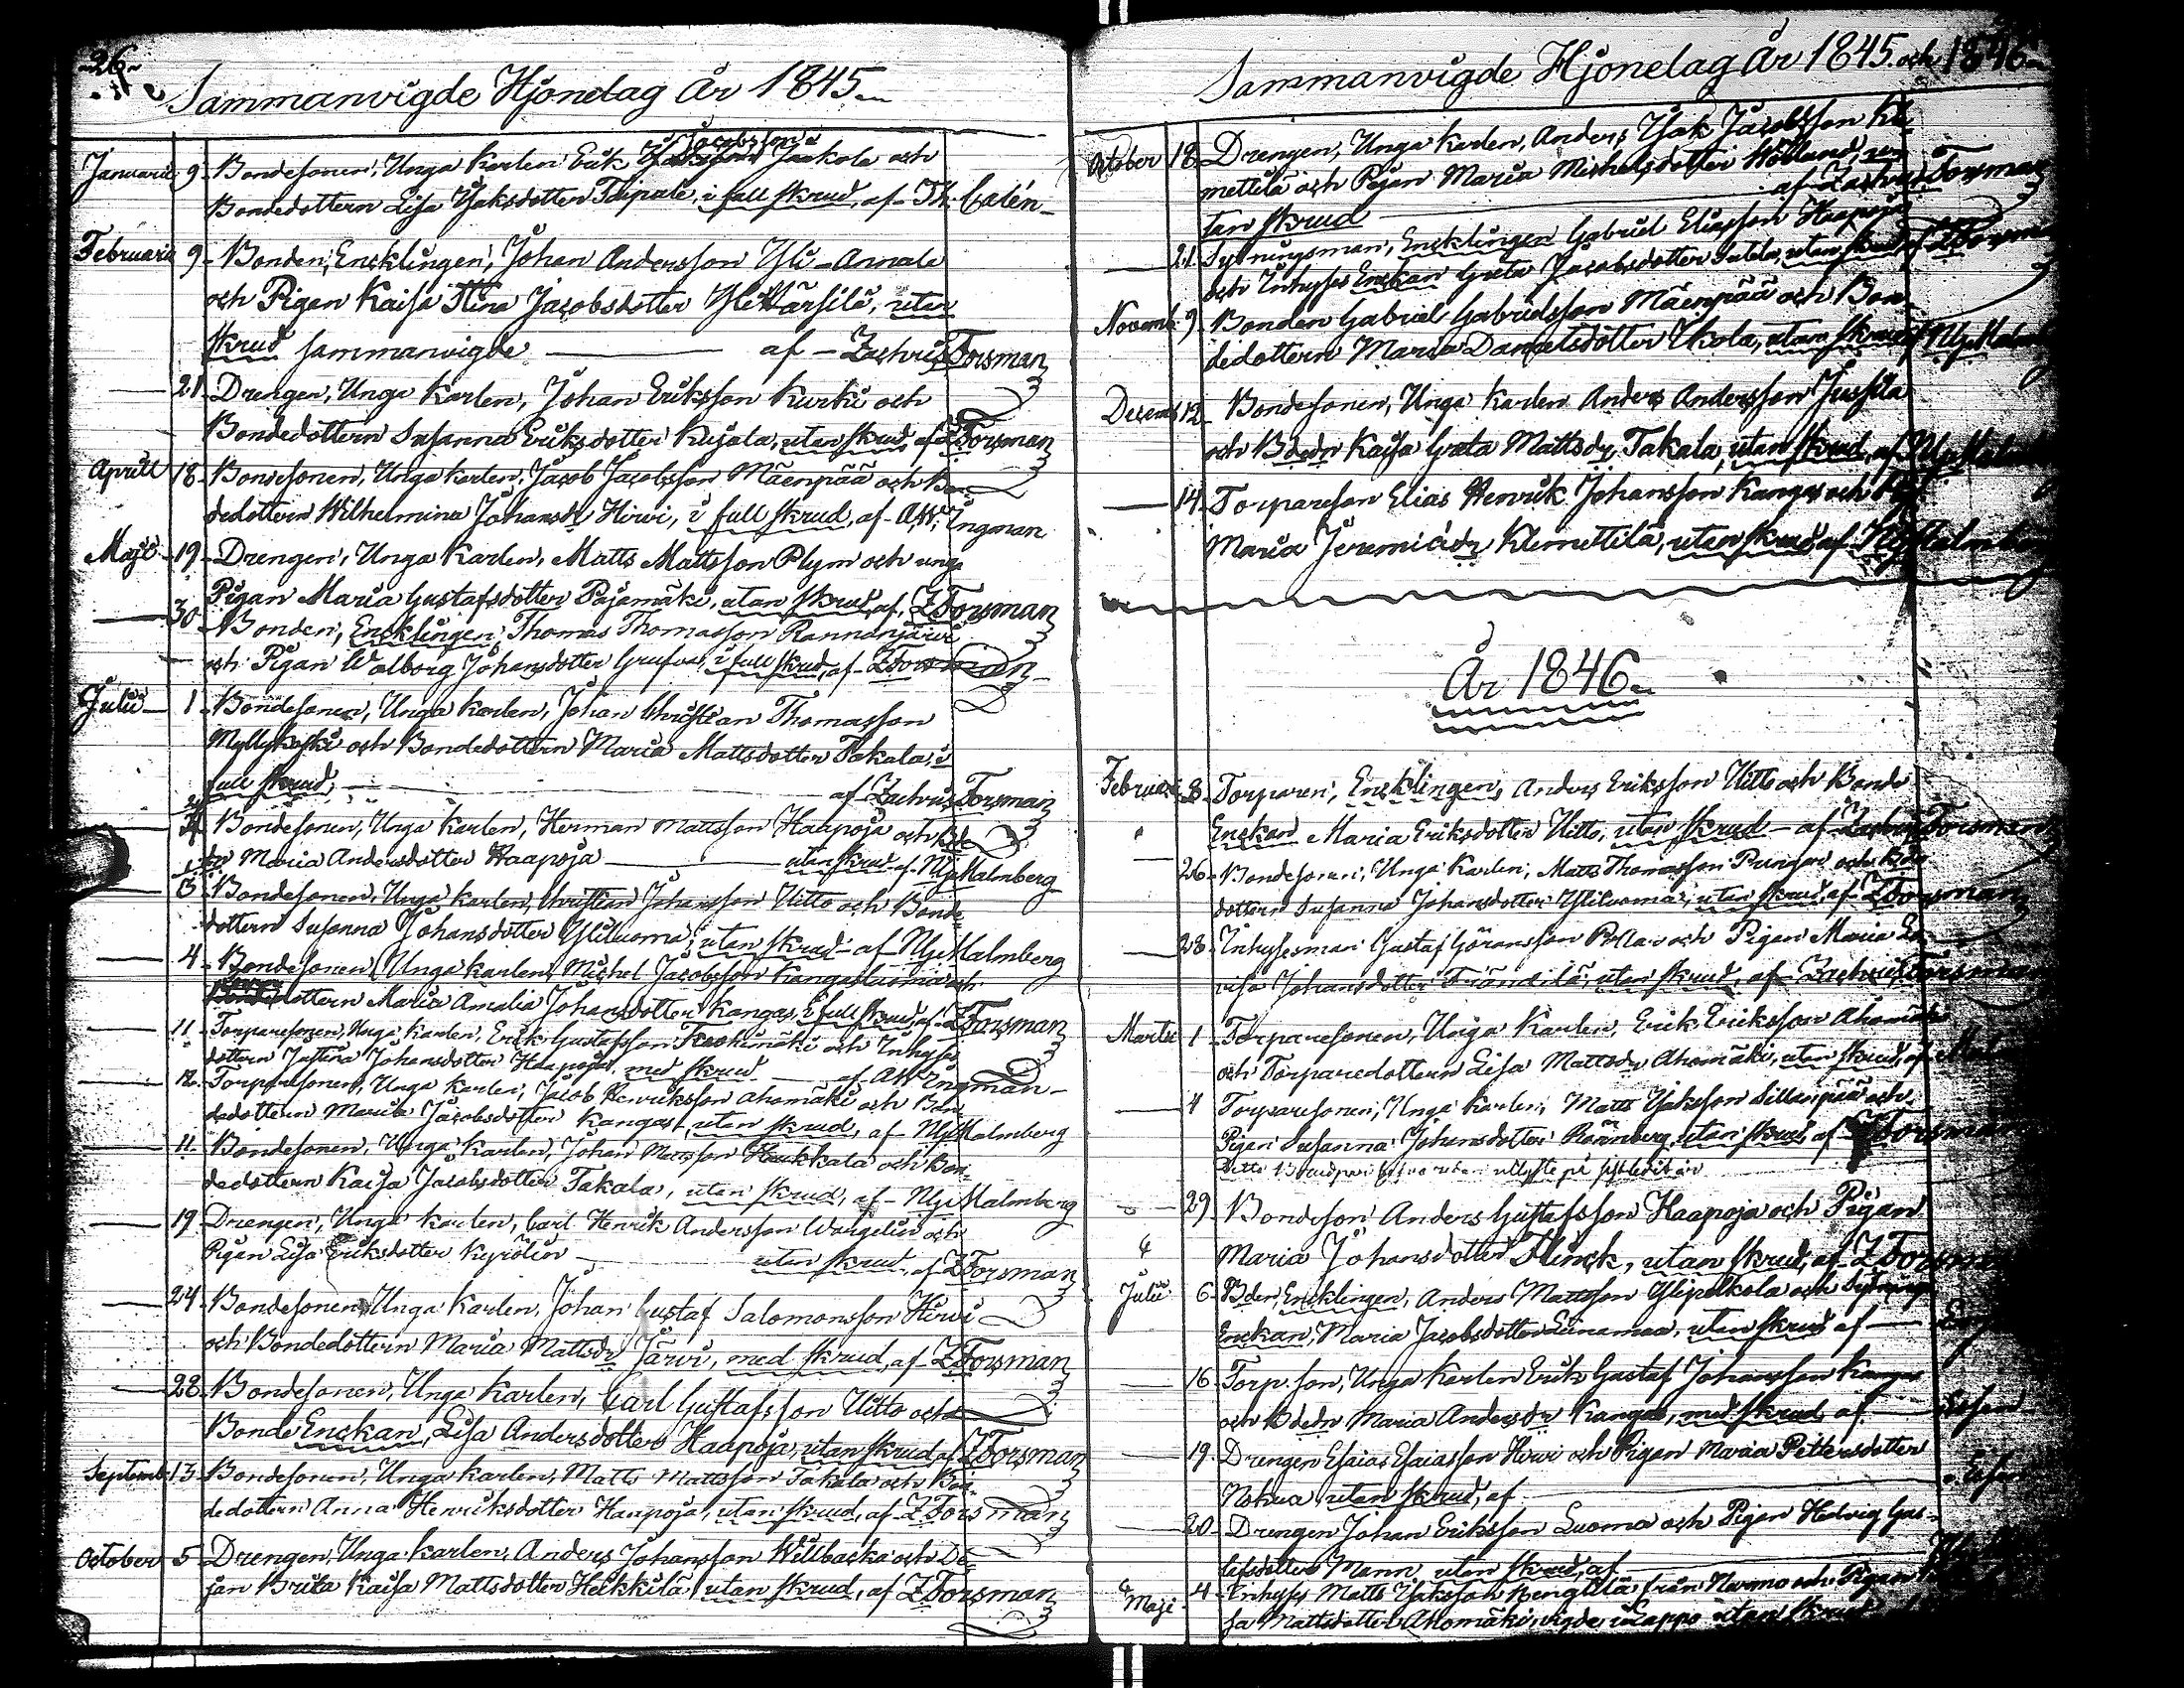 26
Sammanvigde Hjonelag År 1845
Januarii 9 Bondesonen, Unga Karlen Erik Jacobsson Jaakola och
Bondedottern Lisa Isaksdotter Taipale, i full skrud, af Th. Calén
Februarii 9 Bonden, Encklingen, Johan Andersson Yli-Annala
och Pigan Kaisa Stina Jacobsdotter Yli Härsilä, utan
skrud sammanvigde af Zachris Forsman
21 Drengen, Unga Karlen, Johan Eriksson Kurki och
Bondedottern Susanna Eriksdotter Kujala, utan skrud, af Z Forsman
April 18 Bondesonen, Unga Karlen, Jacob Jacobsson Mäenpää och Bon
dedottern Wilhelmina Johansdr Hirvi, i full skrud, af AW. Ingman
Maji 19 Drengen, Unga Karlen, Matts Mattsson Plym och unga
Pigan Maria Gustafsdotter Pajamäki, utan skrud, af Z Forsman
30 Bonden, Encklingen, Thomas Thomasson Rannanjärvi
och Pigan Walborg Johansdotter Grufvas, i full skrud, af Z Forsman
Julii 1 Bondesonen, Unga Karlen, Johan Christian Thomasson
Myllykoski och Bondedottern Maria Mattsdotter Takala, i
full skrud, af Zachris Forsman
Bondesonen, Unga Karlen, Herman Mattsson Haapoja och Bde
dr Maria Andersdotter Haapoja utan skrud af Nljs Malmberg
3 Bondesonen, Unga Karlen, Christian Johansson Uitto och Bonde
dottern Susanna Johansdotter Yliluoma, utan skrud af Nljs Malmberg
4 Bondesonen, Unga Karlen, Michel Jacobsson Kangasluoma och
dottern Maria Amalia Johansdotter Kangas, i full skrud, af Z Forsman
11 Torparesonen, Unga Karlen, Erik Gustafsson och Inhyses
dottern Justina Johansdotter Haapoja, med skrud af AW Ingman
12 Torparesonen, Unga Karlen, Jacob Henriksson Ahomäki och Bon
dedottern Maria Jacobsdotter Kangas, utan skrud, af Nljs Malmberg
11 Bondesonen, Unga Karlen, Johan Mattsson Haukkala och Bon
dedottern Kaisa Jacobsdotter Takala, utan skrud, af Nljs Malmberg
19 Drengen, Unga Karlen, Carl Henrik Andersson Wargelin och
Pigan Lisa Eriksdotter Kyrölin utan skrud, af Z Forsman
24 Bondesonen, Unga Karlen, Johan Gustaf Salomonsson Hirvi
och Bondedottern Maria Mattsdr Järvi, med skrud, af Z Forsman
28 Bondesonen, Unga Karlen, Carl Gustafsson Uitto och
Bonde Enckan, Lisa Andersdotter Haapoja, utan skrud, af Z Forsman
Septemb 13 Bondesonen, Unga Karlen, Matts Mattsson Takala och Bon
dedottern Anna Henriksdotter Haapoja, utan skrud, af Z Forsman
October 5 Drengen, Unga Karlen, Anders Johansson Willbacka och De
jan Brita Kaisa Mattsdotter Heikkilä, utan skrud, af Z Forsman
Sammanvigde Hjonelag År 1845 och 1846
October 18 Drengen, Unga Karlen, Anders Isak Jacobsson Kle
mettilä och Pigan Maria Michelsdotter u
tan skrud af Zachris Forsman
21 Sytningsman, Encklingen Gabriel Eliasson Haapoja
och Inhyses Enckan Greta Jacobsdotter utan skrud af Z Forsman
Novemb 9 Bonden Gabriel Gabrielsson Mäenpää och Bon
dedottern Maria Danielsdotter Ikola, utan skrud af Nljs Malm
Decemb 12 Bondesonen, Unga Karlen Anders Andersson Jussila
och Bdedr Kaisa Greta Mattsdr Takala, utan skrud, af Nljs Malm
14 Torpareson Elias Henrik Johansson Kangas och
Maria Jeremiædr Klemettilä, utan skrud af Nljs Malmberg
År 1846
Februarii 8 Torparen, Encklingen, Anders Eriksson Uitto och Bonde
Enckan Maria Eriksdotter Uitto, utan skrud af Zachris Forsman
26 Bondesonen, Unga Karlen, Matts Thomasson och Bde
dottern Susanna Johansdotter Yliluoma, utan skrud, af Z Forsman
28 Inhysesman Gustaf Göransson och Pigan Maria Lo
visa Johansdotter Frändilä, utan skrud, af Zachris Forsman
Martii 1 Torparesonen, Unga Karlen, Erik Eriksson Ahomäki
och Torparedottern Lisa Mattsdr Ahomäki, utan skrud, af Malm
4 Torparesonen, Unga Karlen, Matts Isaksson Sillanpää och
Pigan Susanna Johansdotter Rönnberg, utan skrud, af Z Forsman
29 Bondeson Anders Gustafsson Haapoja och Pigan
Maria Johansdotter Flinck, utan skrud, af Z Forsman
Julii 6 Bden, Encklingen, Anders Mattsson och Sytnings
Enckan, Maria Jacobsdotter Liinamaa, utan skrud af
16 Torp. son, Unga Karlen Erik Gustaf Johansson Kangas
och Bdedr Maria Andersdr Kangas, med skrud, af
19 Drengen Esaias Esaiasson Hirvi och Pigan Maria Pettersdotter
Nohua, utan skrud, af
20 Drengen Johan Eriksson Luoma och Pigan Hedvig Gus
tafsdotter Mann, utan skrud, af
Maji 4 Inhyses Matts Isaksson Rengilä från Nurmo och Pigan
sa Mattsdotter Ahomäki, vigde i Lappo utan skrud